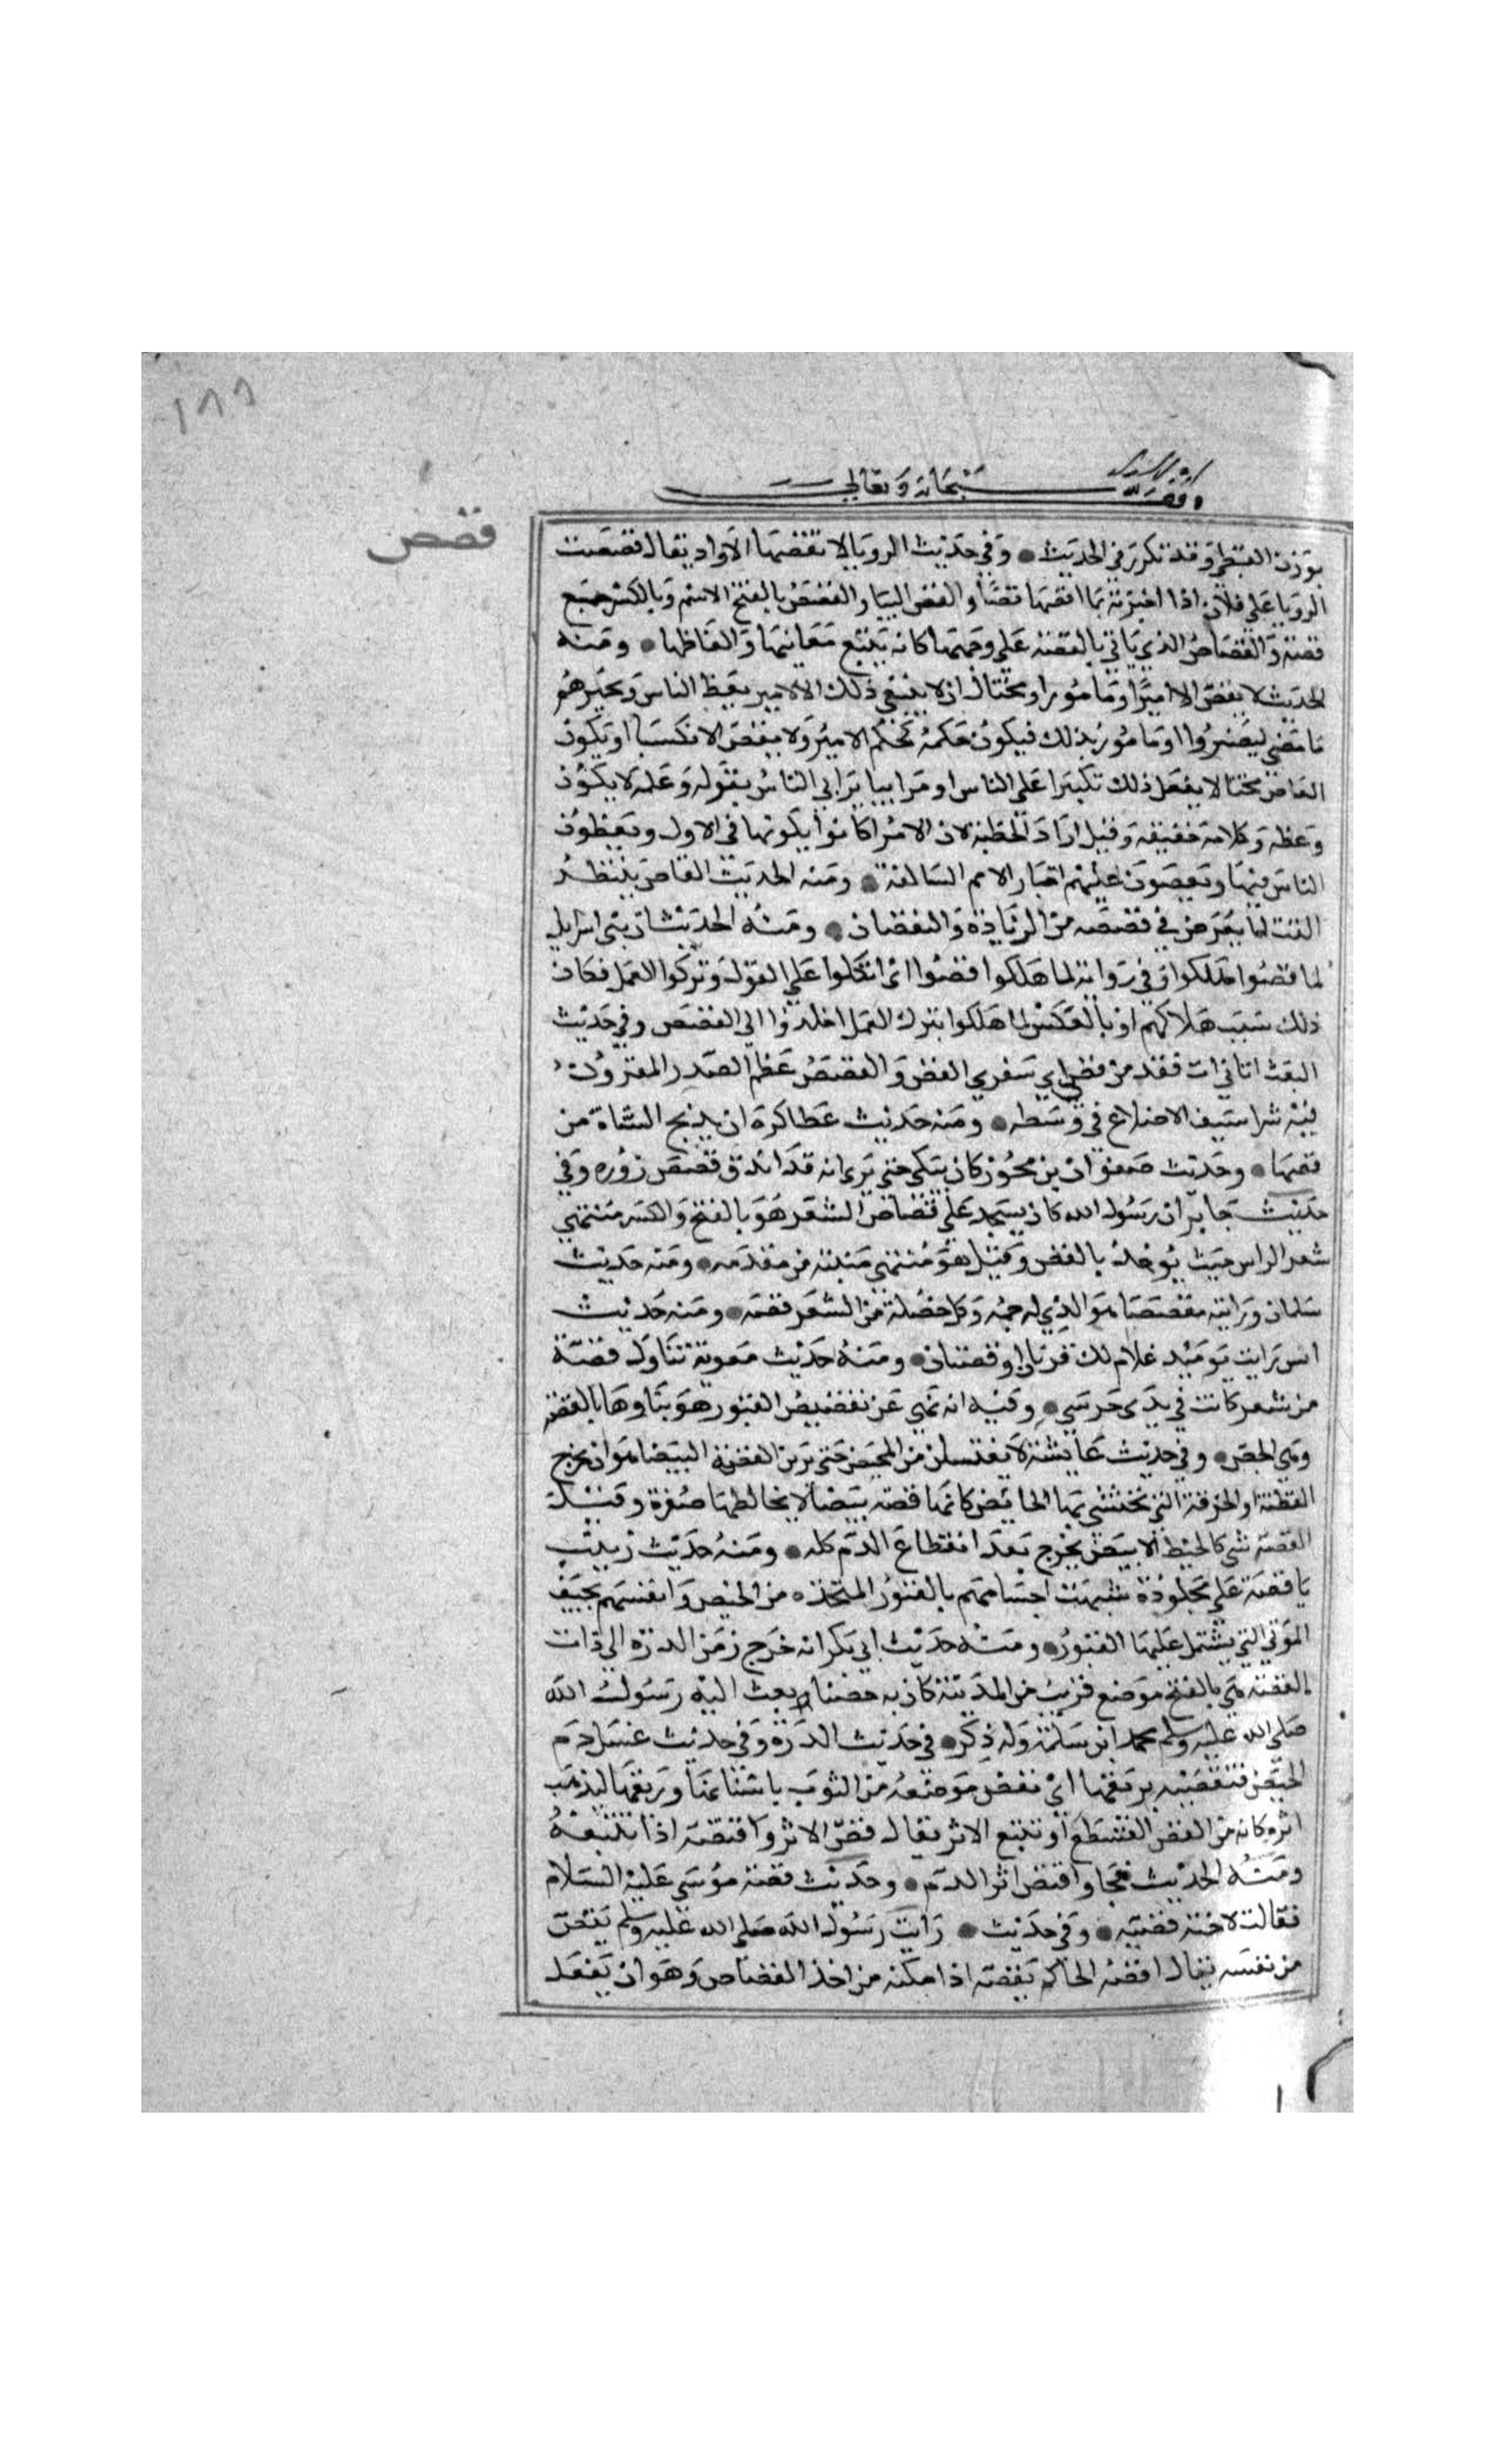 ١٨٨
وقف لله سبحانه وتعالى
قصص
بوزن القبطى وقد تكرر فى الحديث ● وفى حديث الرويا لا تقصها الا واد يقال قصصت
الرويا على فلان اذا اخبرته بها اقصها قصا والقص البيا والقصص بالفتح الاسم وبالكسر جمع
قصة والقصاص الذى ياتى بالقصة على وجهها كانه يتتبع معانيها والفاظها ● ومنه
الحديث لا يقص الا اميرا ومامورا ومختال اى لا ينبغى ذلك الا لامير يعظ الناس ويخبرهم
ما مضى ليعتبروا او مامور بذلك فيكون حكمه حكم الامير ولا يقص الا تكسبا او يكون
القاص مختالا يفعل ذلك تكبرا على الناس او مراييا يراى الناس بقوله وعمله لا يكون
وعظه وكلامه حقيقة وقيل اراد الخطبة لان الامرا كانوا يلونها فى الاول ويعظون
الناس فيها ويقصون عليهم اخبار الامم السالفة ● ومنه الحديث القاص ينتظر
المقت لما يعرض فى قصصه من الزيادة والنقصان ● ومنه الحديث ان بنى اسرايل
لما قصوا هلكوا وفى رواية لما هلكوا قصوا اى اتكلوا على القول وتركوا العمل فكان
ذلك سبب هلاكهم او بالعكس لما هلكوا بترك العمل اخلدوا الى القصص وفى حديث
البعث اتانى ات فقد من قصى الى شعرتى القص والقصص عظم الصدر المغروز
فيه شراسيف الاضلاع فى وسطه ● ومنه حديث عطا كره ان يذبح الشاة من
قصها ● وحديث صفوان بن محرز كان يبكى حتى يرى انه قد اندق قصص زوره وفى
حديث جابر ان رسول الله كان يسجد على قصاص الشعر هو بالفتح والكسر منتهى
شعر الراس حيث يوخذ بالقص وقيل هو منتهى منبته من مقدمه ● ومنه حديث
سلمان ورايته مقصصا هو الذى له جمة وكل خصلة من الشعر قصة ● ومنه حديث
انس رايت يوميذ غلام لك قرنان او قصتان ● ومنه حديث معوية تناول قصة
من شعر كانت فى يدى حرسى ● وفيه انه نهى عن تقصيص القبور هو بناوها بالقصة
وهى الجص ● وفى حديث عايشة لا يغتسلن من المحيض حتى ترين القصة البيضا هو ان يخرج
القطنة او الخرقة التى تحتشى بها الحايض كانها قصة بيضا لا يخالطها صفرة وقيل
القصة شى كالخيط الابيض يخرج بعد انقطاع الدم كله ● ومنه حديث زينب
يا قصة على ملحودة شبهت اجسامهم بالقبور المتخذه من الجص وانفسهم بجيف
الموتى التى يشتمل عليها القبور ● ومنه حديث ابى بكر انه خرج زمن الردة الى ذات
القصة هى بالفتح موضع قريب من المدينة كان به حصنا بعث اليه رسول الله
صلى الله عليه وسلم محمد ابن سلمة وله ذكر ● فى حديث الردة وفى حديث غسل دم
الحيض فتقصيه بريقها اى تقص موضعه من الثوب باسنانها وريقها ليذهب
اثره كانه من القص القطع او تتبع الاثر يقال قص الاثر واقتصه اذا تتبعه
ومنه الحديث فجا واقتص اثر الدم ● وحديث قصة موسى عليه السلام
فقالت لاخته قصيه ● وفى حديث ● رايت رسول الله صلى الله عليه وسلم يقص
من نفسه يقال اقصه الحاكم يقصه اذا مكنه من اخذ القصاص وهو ان يفعل